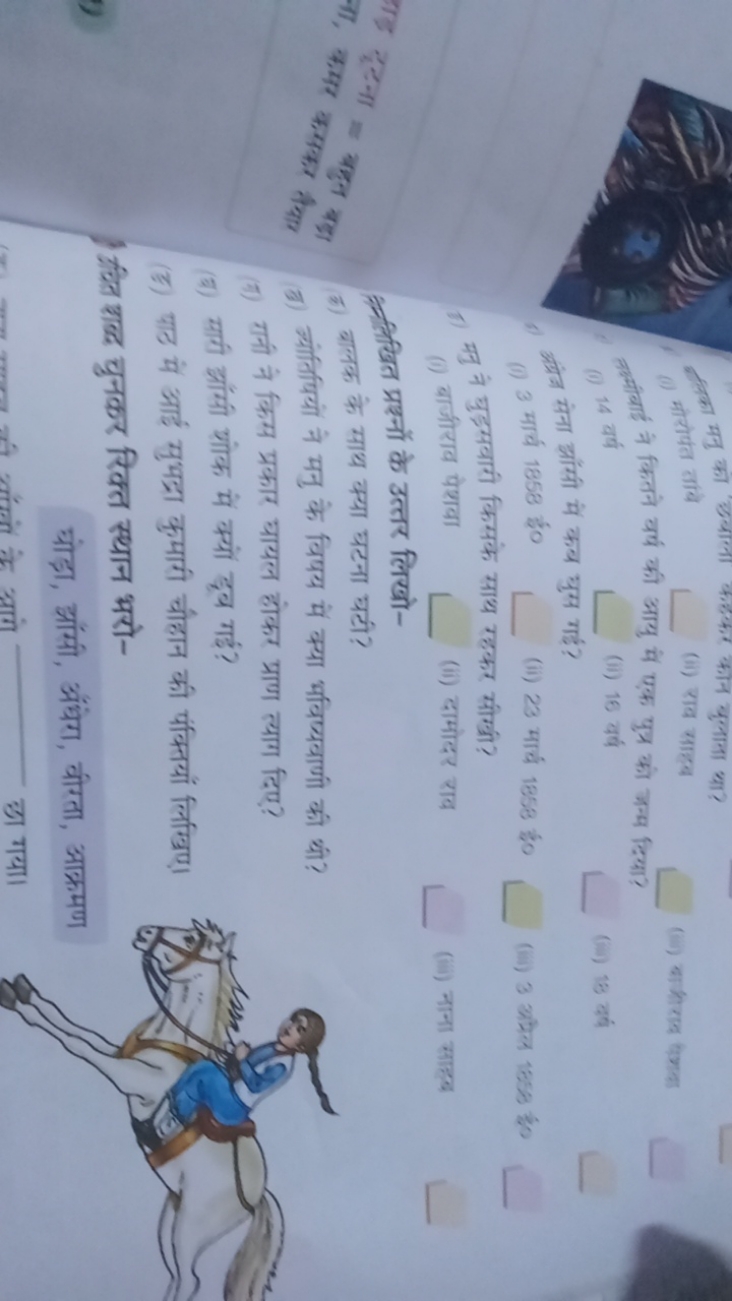 टूटना = बहुत बड़ा
कमर कसकर तैयार
मनु को छबीली कहकर कौन बुलाता था?
(i) मोरोपंत तांबे (ii) राव साहब (iii) बाजीराव पेशवा
लक्ष्मीबाई ने कितने वर्ष की आयु में एक पुत्र को जन्म दिया?
(i) 14 वर्ष (ii) 16 वर्ष (iii) 18 वर्ष
अंग्रेज सेना झांसी में कब घुस गई?
(i) 3 मार्च 1858 ई० (ii) 23 मार्च 1858 ई० (iii) 3 अप्रैल 1858 ई०
मनु ने घुड़सवारी किसके साथ रहकर सीखी?
(i) बाजीराव पेशवा (ii) दामोदर राव (iii) नाना साहब
निम्नलिखित प्रश्नों के उत्तर लिखो–
क) बालक के साथ क्या घटना घटी?
(ख) ज्योतिषियों ने मनु के विषय में क्या भविष्यवाणी की थी?
(ग) रानी ने किस प्रकार घायल होकर प्राण त्याग दिए?
(घ) सारी झांसी शोक में क्यों डूब गई?
(ङ) पाठ में आई सुभद्रा कुमारी चौहान की पंक्तियां लिखिए।
उचित शब्द चुनकर रिक्त स्थान भरो–
घोड़ा, झांसी, अंधेरा, वीरता, आक्रमण
की आंखों के आगे ________ छा गया।